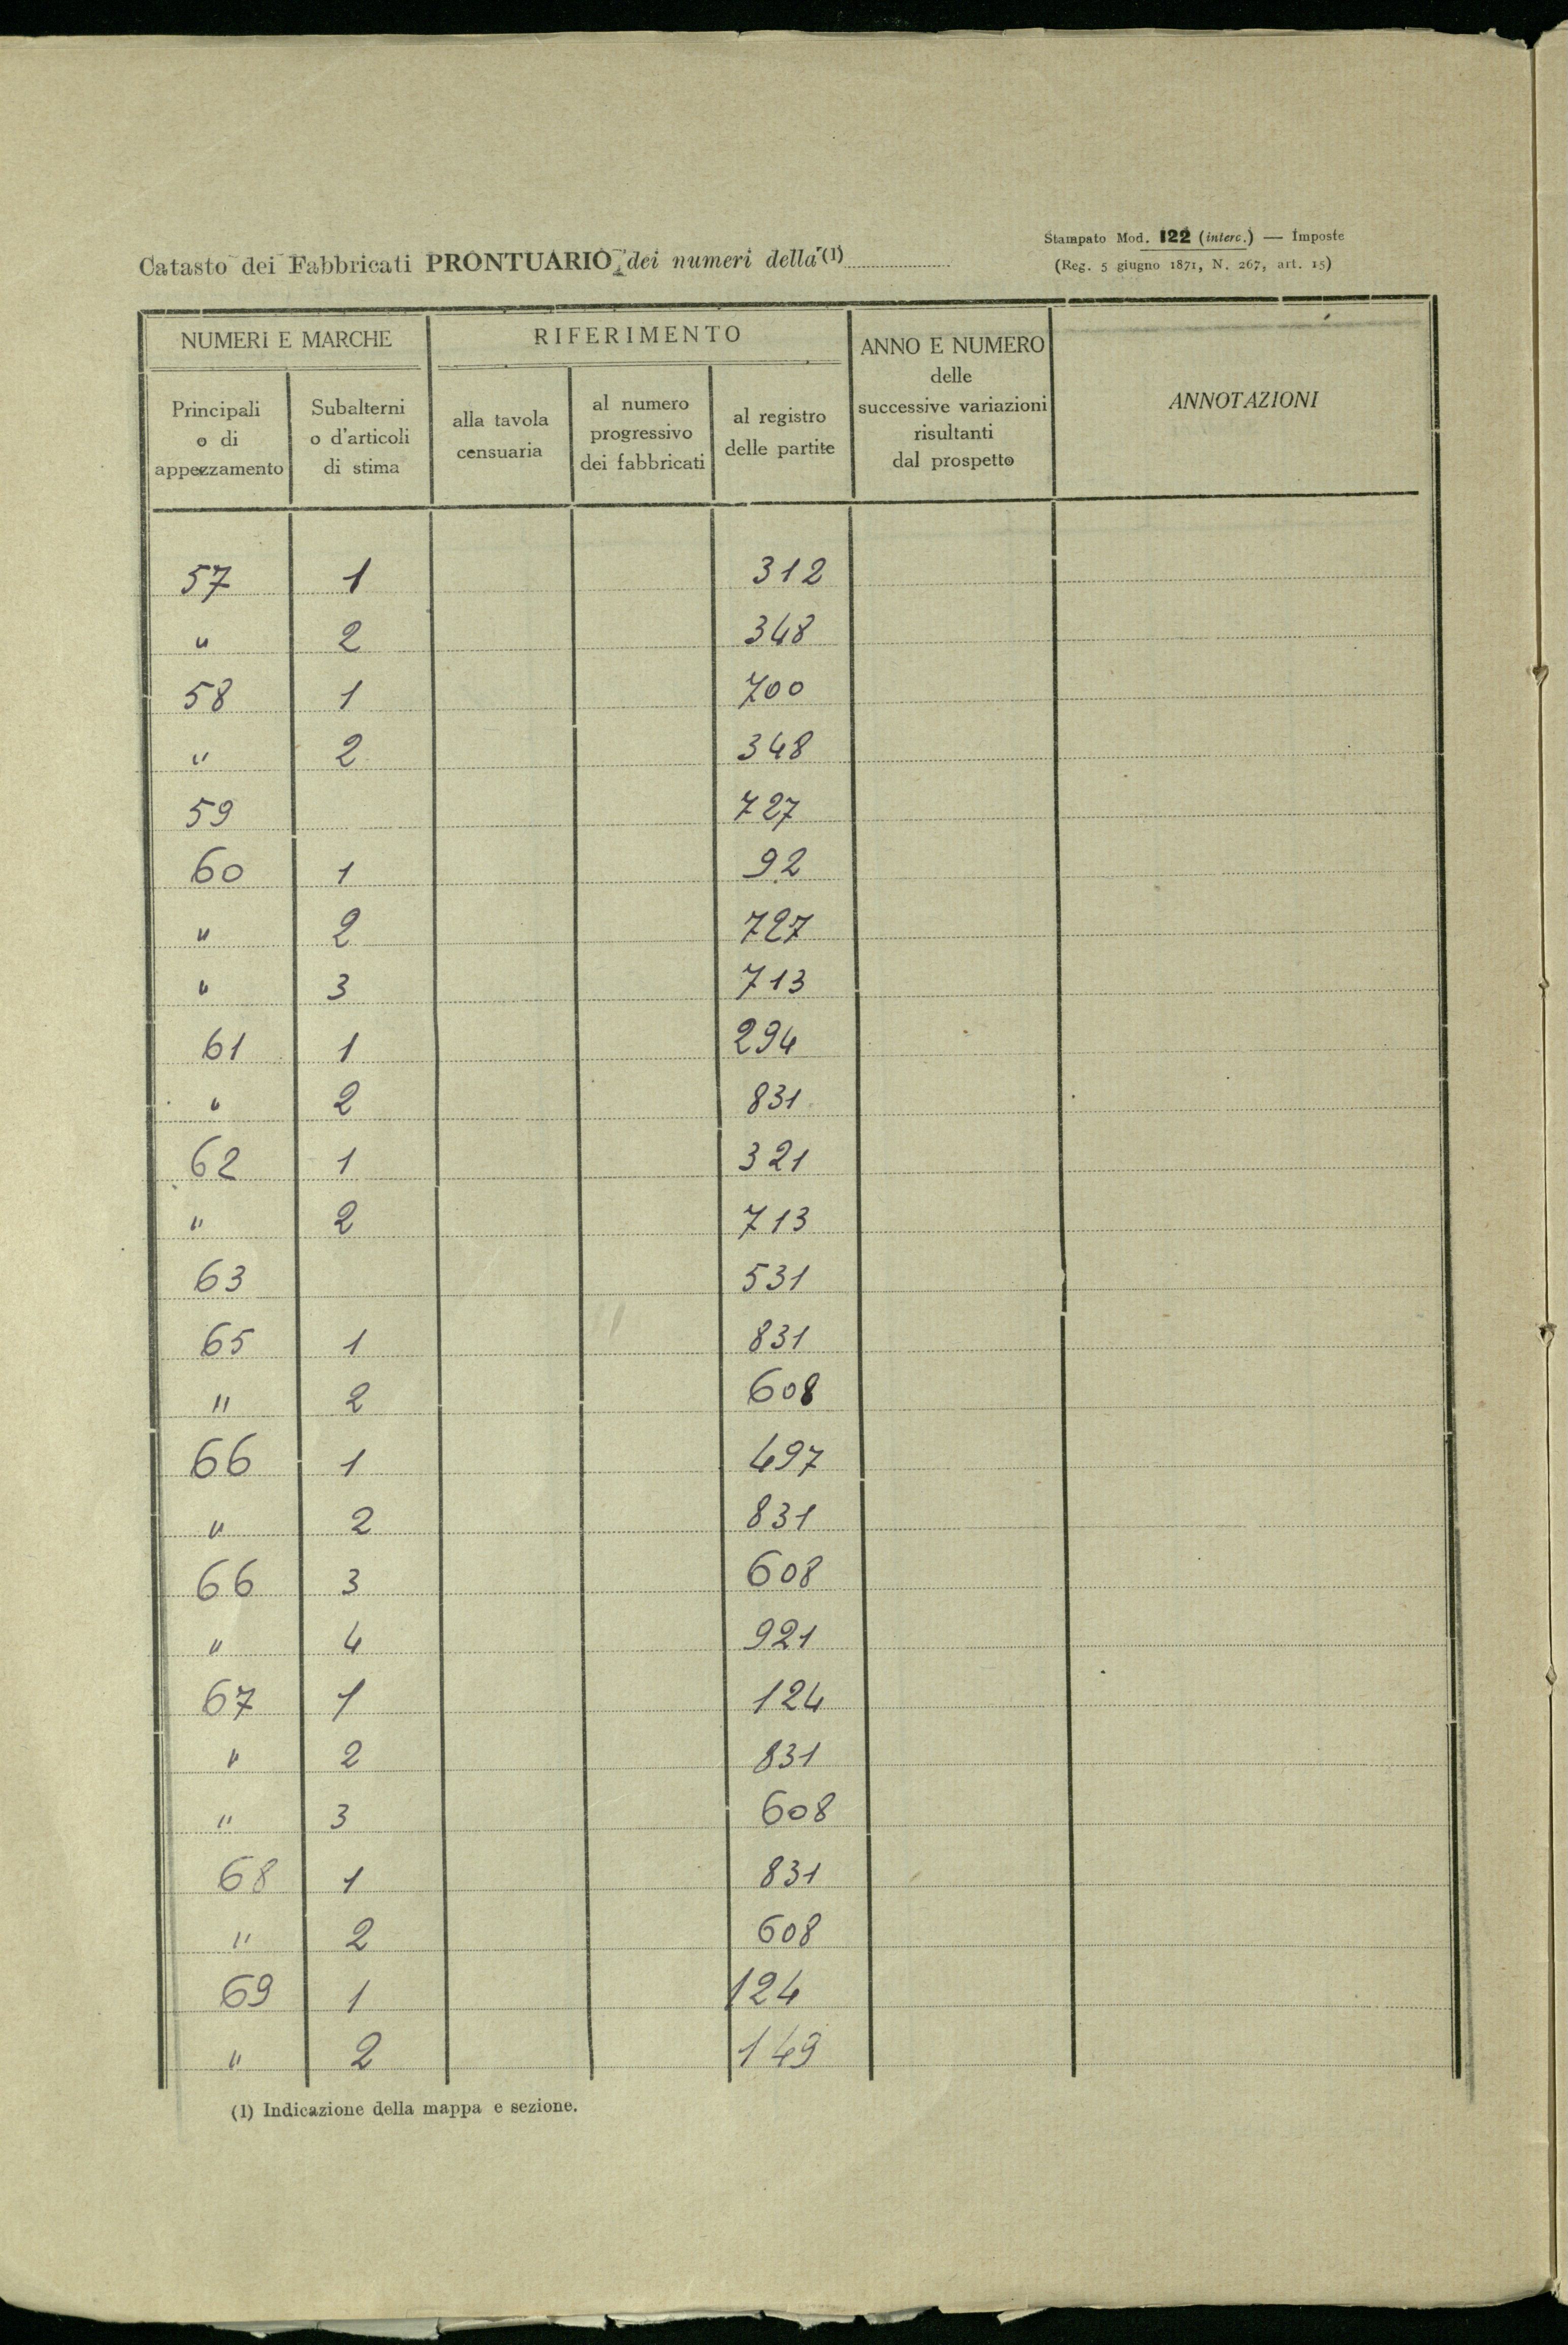 Stampato Mod. 122 (interc.) — Imposte
Catasto dei Fabbricati PRONTUARIO dei numeri della (1)
(Reg. 5 giugno 1871, N. 267, art. 15)
NUMERI E MARCHE RIFERIMENTO ANNO E NUMERO delle successive variazioni risultanti dal prospetto ANNOTAZIONI
Principali o di appezzamento Subalterni o d'articoli di stima alla tavola censuaria al numero progressivo dei fabbricati al registro delle partite
57 1 312
" 2 348
58 1 700
" 2 348
59 727
60 1 92
" 2 727
" 3 713
61 1 294
" 2 831
62 1 321
" 2 713
63 531
65 1 831
" 2 608
66 1 497
" 2 831
66 3 608
" 4 921
67 1 124
" 2 831
" 3 608
68 1 831
" 2 608
69 1 124
" 2 149
(1) Indicazione della mappa e sezione.